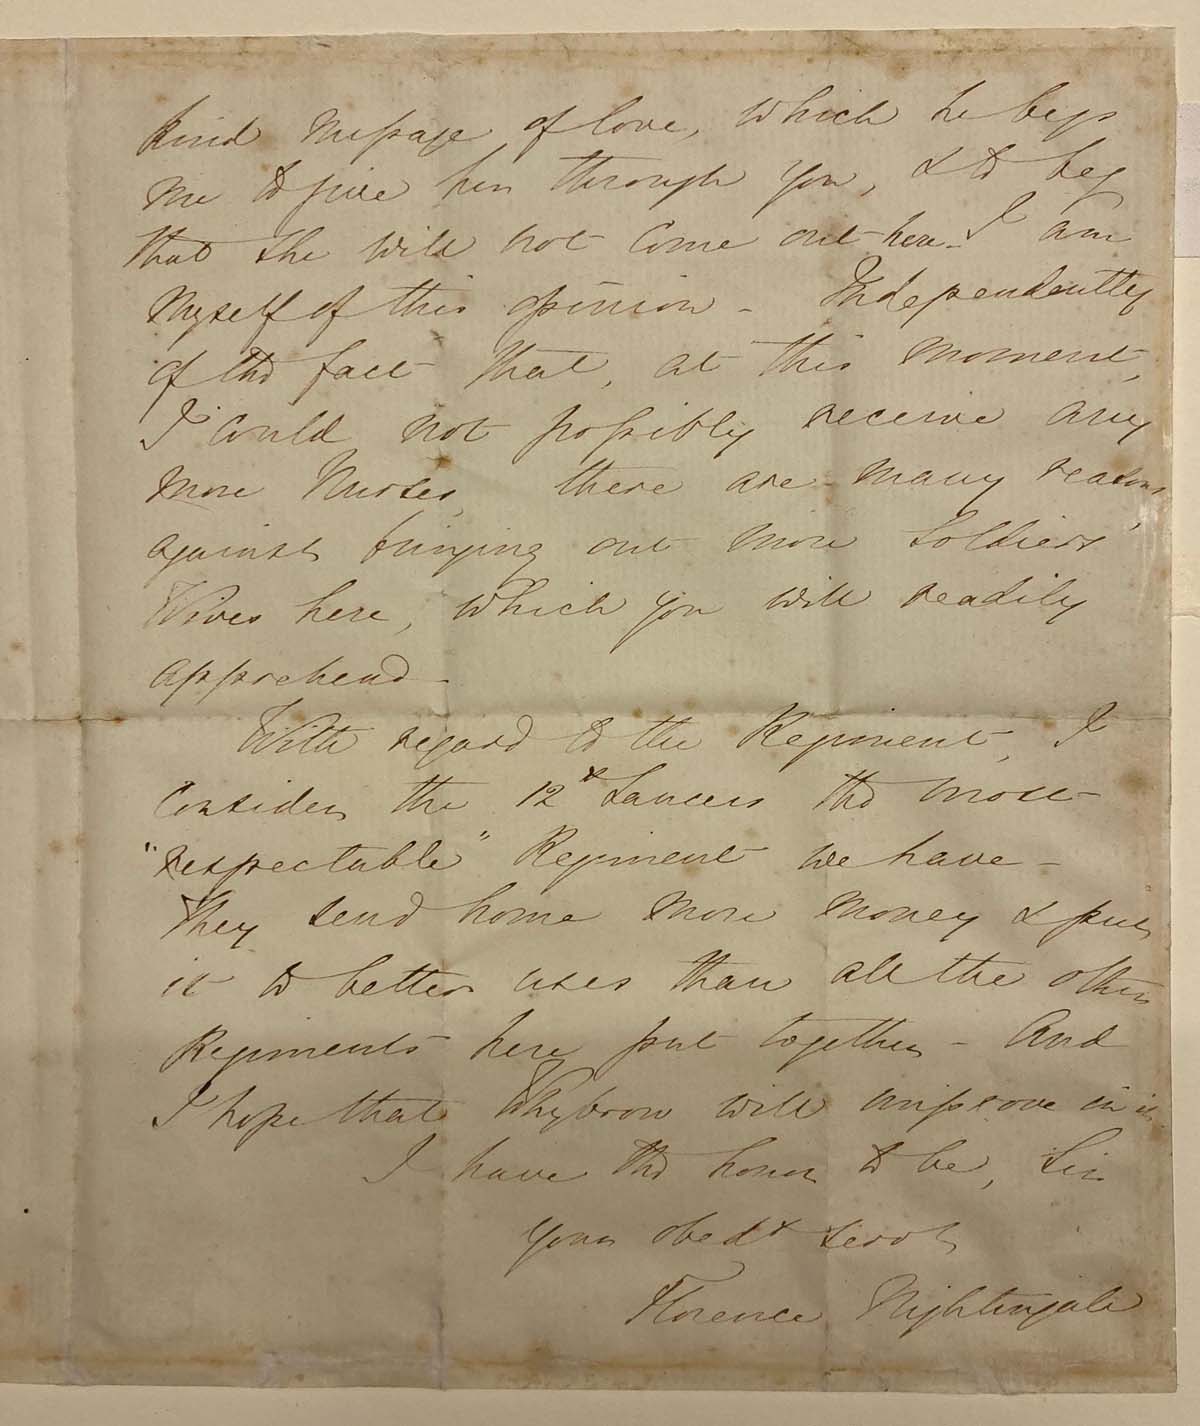 kind message of love, which he begs
me to give her through you, & to beg
that she will not come out here - I am
myself of this opinion - Independently
of the fact that, at this moment,
I could not possibly receive any
more Nurses, there are many reasons
against bringing out more Soldiers'
Wives here, which you will readily
apprehend -
With regard to the Regiment, I
consider the 12th Lancers the most
"respectable" Regiment we have -
They send home more money & put
it to better uses than all the other
Regiments here put together - And
I hope that Whybron will improve in it.
I have the honor to be, Sir
your obedt servt
Florence Nightingale